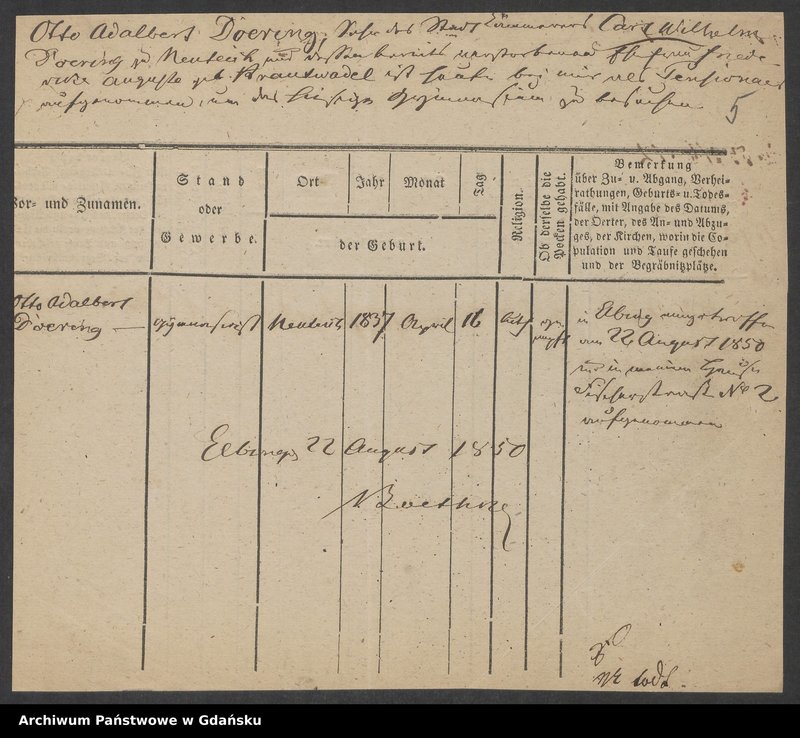 Otto Adalbert Doering, Sohn des Stadt Kämmerers Carl Wilhelm
Doering zu Neuteich und dessen bereits verstorbenen Ehefrau Friede-
ricke Auguste geb. Krautwadel ist heute bei mir als Pensionair
aufgenommen, um das hiesige Gymnasium zu besuchen.
5
Vor- und Zunamen.
Stand
oder
Gewerbe.
Ort
Jahr
Monat
Tag
der Geburt.
Religion.
Ob derselbe die
Pocken gehabt.
Bemerkung
über Zu- u. Abgang, Verhei-
rathungen, Geburts- u. Todes-
fälle, mit Angabe des Datums,
der Oerter, des An- und Abzu-
ges, der Kirchen, worin die Co-
pulation und Taufe geschehen
und der Begräbnitzplätze.
Otto Adalbert
Doering
Gymnasiast
Neuteich
1837
April
16
luth
ge-
impft
in Elbing eingetroffen
am 22 August 1850
und in meinem Hause
Fischerstraße No 2
aufgenommen
Elbing 22 August 1850
todt.
Archiwum Państwowe w Gdańsku